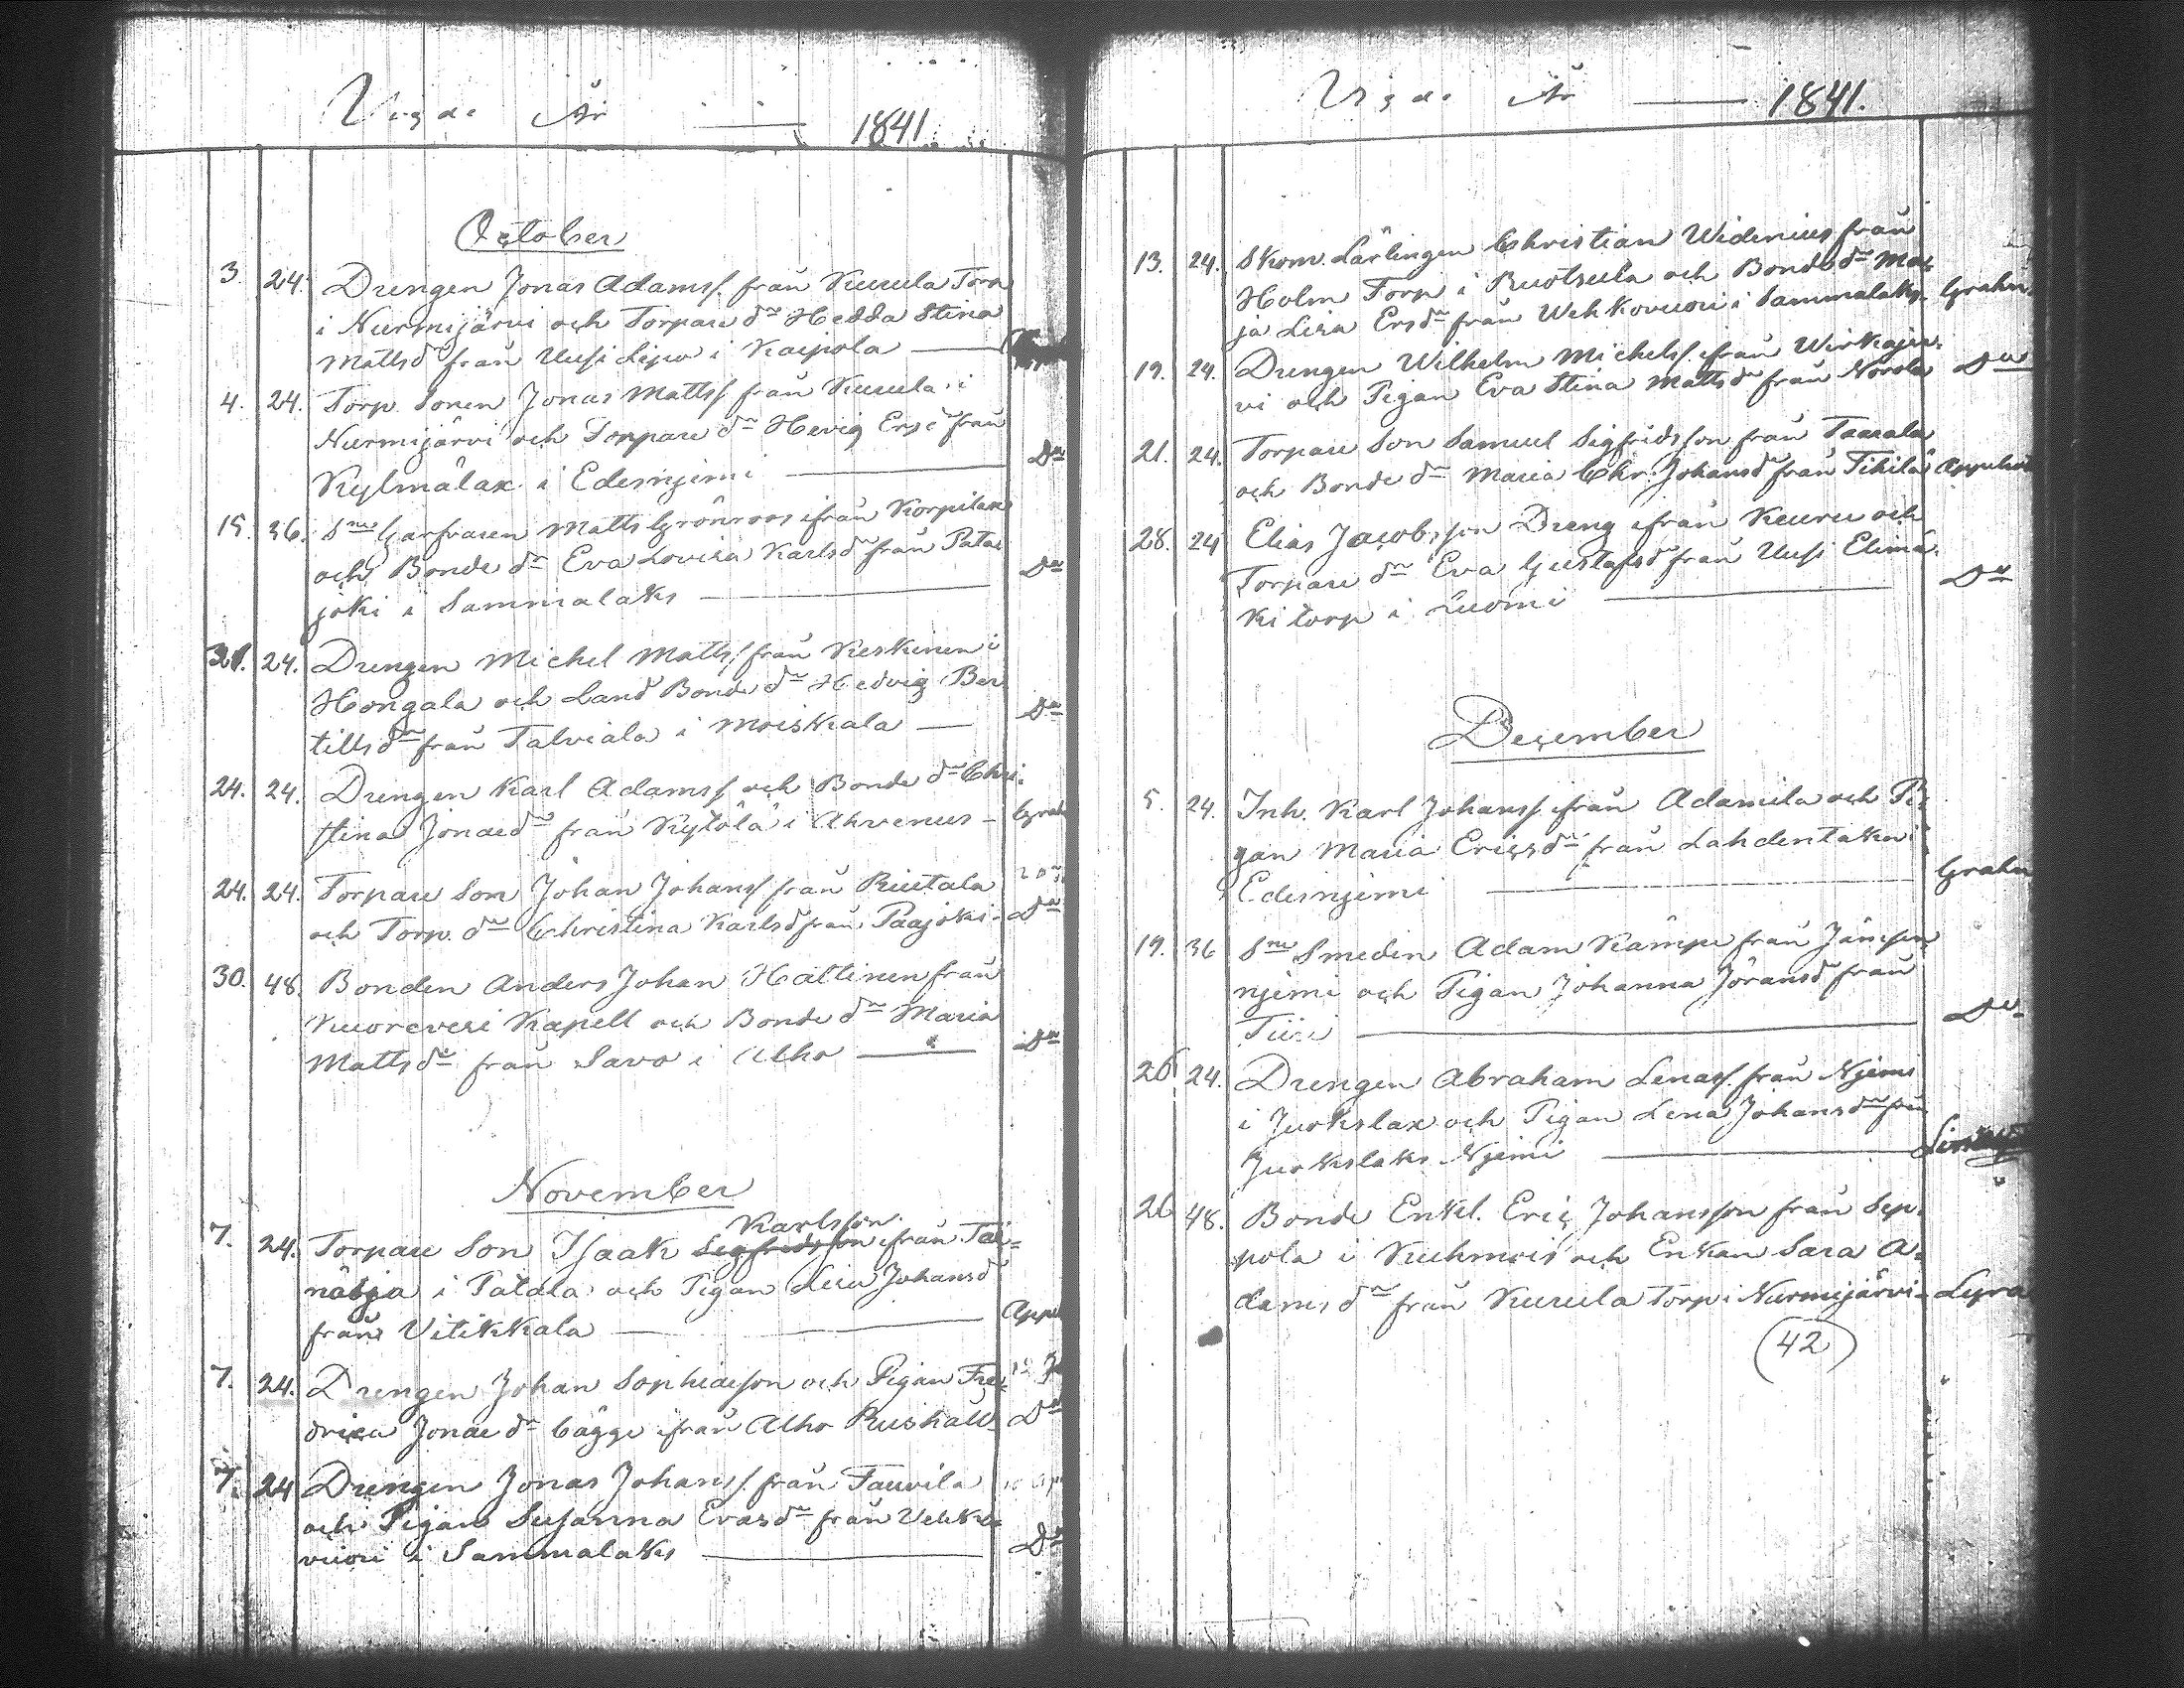 Vigde År — 1841
October
3. 24. Drengen Jonas Adamss. från Kuusela Torp
i Nurmijärvi och Torpare dr Hedda Stina
Mattsdr från Uusi Lipo i Kaipola —
4. 24. Torp. Sonen Jonas Mattss från Kuusela i
Nurmijärvi och Torpare dr Hevig Ersdr från
Kylmälax i Edesnjemi — Do
15. 36. Sne Garfvaren Matts Grönroos ifrån Korpilax
och Bonde dr Eva Lovisa Karlsdr från Pata
joki i Sammalaks — Do
24. Drengen Michel Mattss från Keskinen i
Hongala och Land Bonde dr Hedvig Ber
tillsdr från Talviala i Moiskala — Do
24. 24. Drengen Karl Adamss och Bonde dr Chri-
stina Jonaedr från Kylölä i Ahvenus — Grah
24. 24. Torpare Son Johan Johanss från Riutala
och Torp. dr Christina Karlsd från Paajoki - Do
30. 48. Bonden Anders Johan Hattinen från
Kuorevesi Kapell och Bonde dr Maria
Mattsdr från Savo i Alho — Do
November
Karlsson
7. 24. Torpare Son Isaak Sigfridsson ifrån Tai-
i Patala och Pigan Johansd
från Vitikkala — App
7. 24. Drengen Johan Sophiaeson och Pigan Fre-
drica Jonae dr bägge ifrån Alho Rusthåll Do
7. 24 Drengen Jonas Johanss. från Tauvila
och Pigan Susanna Evasdr från Vehko
vuori i Sammalaks — Do
Vigde År — 1841.
13. 24. Skom. Lärlingen Christian Widenius från
Holm Torp i Ruotsula och Bonde dr Ma-
ja Lisa Ersdr från Wehkovuori i Sammalaks. Grahn.
19. 24. Drengen Wilhelm Michelss. ifrån Wirkajär-
vi och Pigan Eva Stina Mattsdr från Norola Do
21. 24. Torpare Son Samuel Sigfridsson från Taarala
och Bonde dr Maria Chr. Johansd från Tihilä
28. 24 Elias Jacobsson Dreng ifrån Keuru och
Torpare dr Eva Gustafsdr från Uusi Elimä-
ki torp i Luomi — Do
December
5. 24. Inh. Karl Johanss. ifrån Adamila och Pi-
gan Maria Ericsdr från Lahdentaka i
Edesnjemi — Grahn
19. 36 Sne Smeden Adam Kämpe från Jämsen
njemi och Pigan Johanna Jöransdr från
— Do
26 24. Drengen Abraham Lenass. från Njemi
i Juokslax och Pigan Lena Johansdr från
Juokslaks Njemi —
26 48. Bonde Enkl. Eric Johansson från Sep-
pola i Kuhmois och Enkan Sara A-
damsdr från Kuusela torp i Nurmijärvi -
(42)